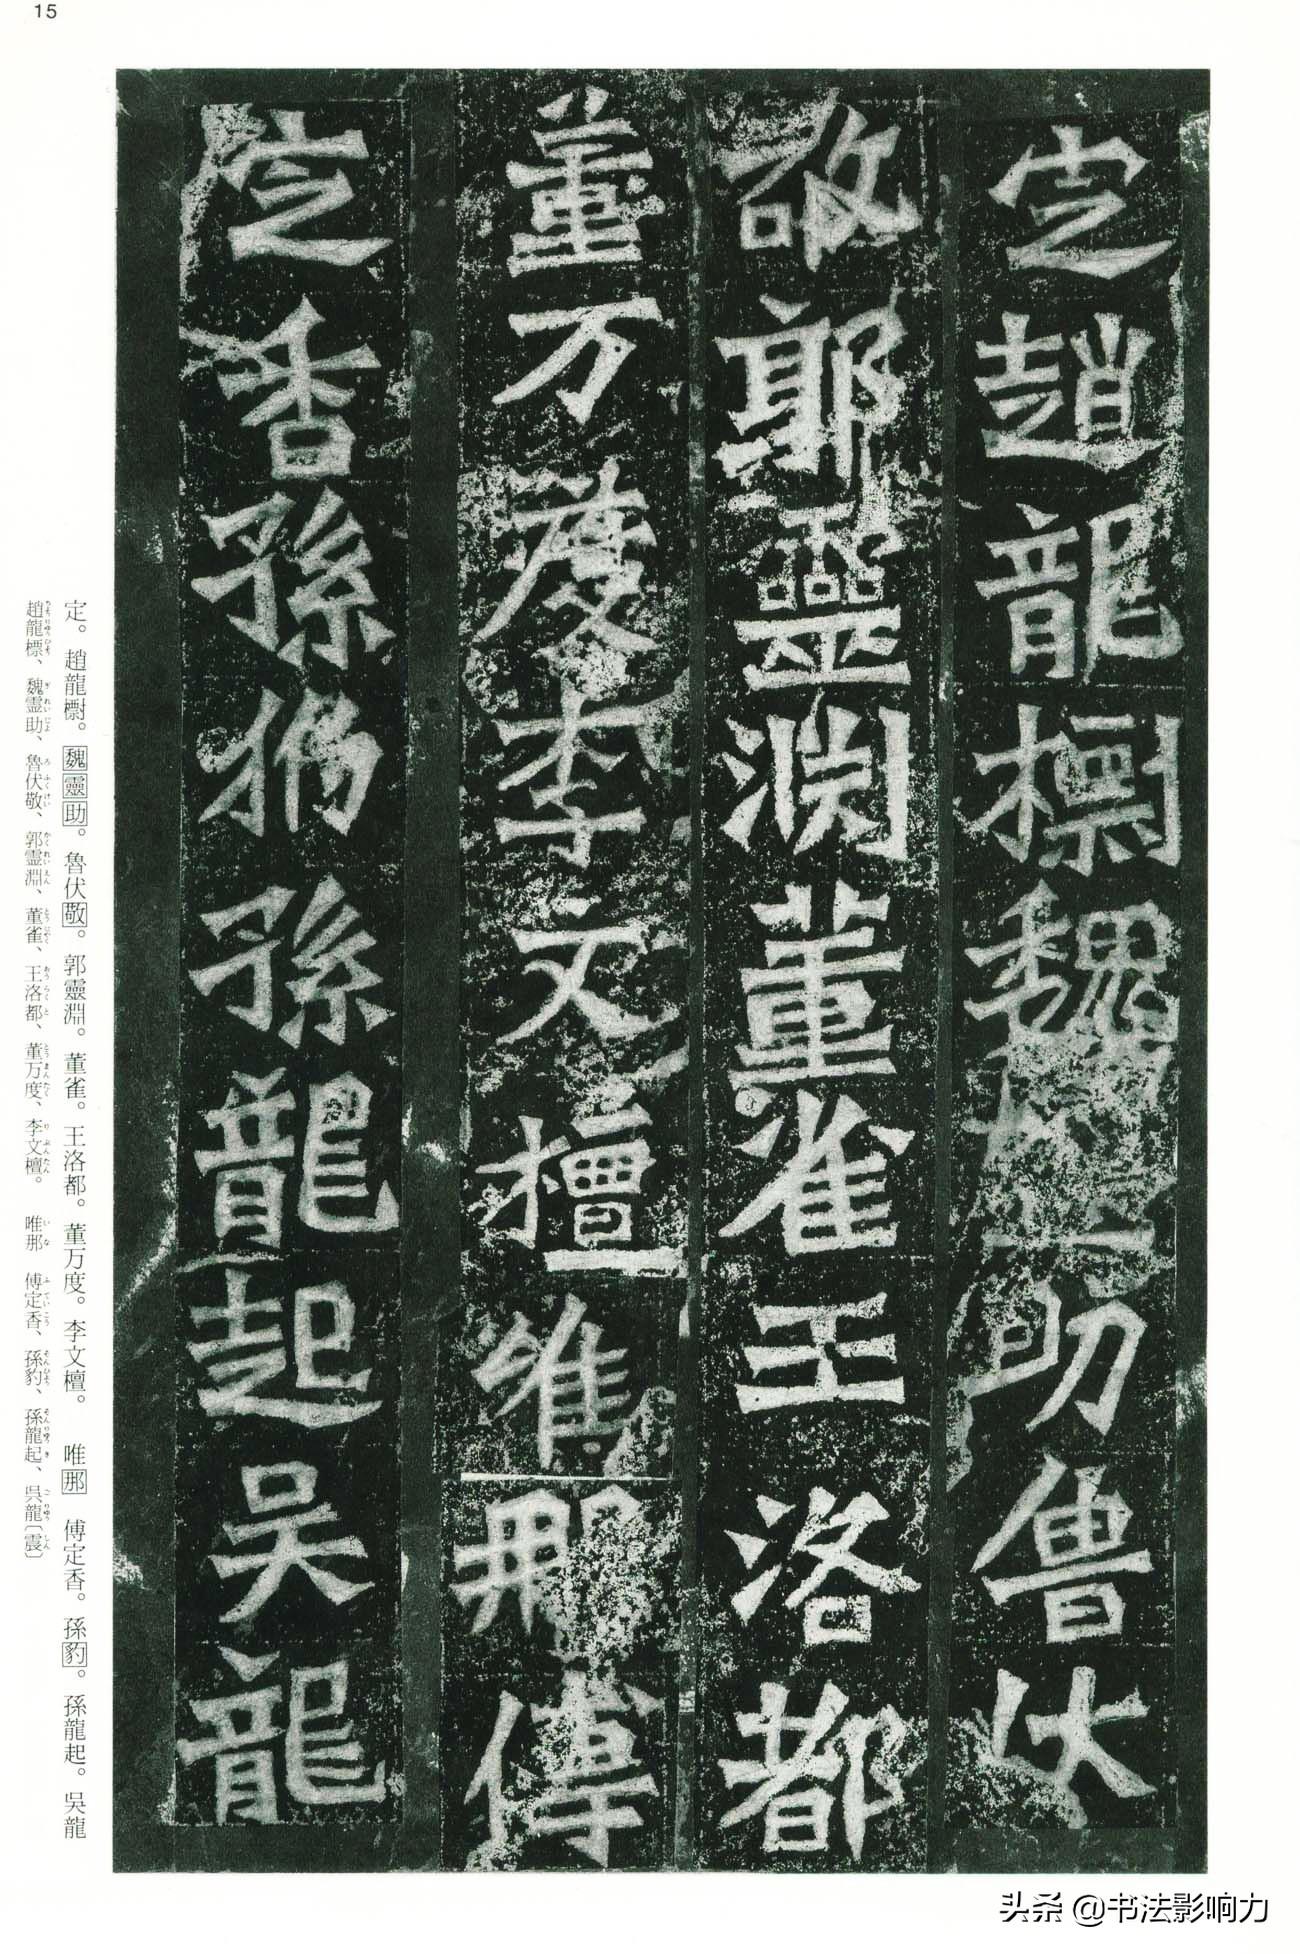 15
定趙龍㯹魏靈助魯伏
敬郭靈淵董雀王洛都
董万度李文檀唯那傅
定香孫豹孫龍起吳龍
定。趙龍㯹。魏靈助。魯伏敬。郭靈淵。董雀。王洛都。董万度。李文檀。 唯那 傅定香。孫豹。孫龍起。吳龍
趙龍標、魏霊助、魯伏敬、郭霊淵、董雀、王洛都、董万度、李文檀。 唯那 傅定香、孫豹、孫龍起、呉龍〔震〕
头条 @书法影响力